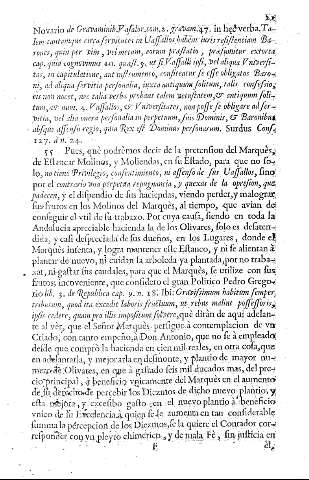 Novario de Gravaminib. Vasalor. tom. 2. gravam. 47. in hæc verba. Ta-
lem cantumque circa servitutes in Vassallos habent iuris resistentiam Ba-
rones, quin per vim, vel metum, eorum præstatio, præsumitur extorta
cap. quia cognovimus 10. quæst. 9. ut si Vassalli ipsi, vel aliqua Vniversi-
tas, in capitulatione, aut instrumento, confiteatur se esse obligatos Baro-
ni, ad aliqua servitia personalia, iuxta antiquum solitum, talis confessio,
eis non nocet, nec talia verba probant talem vetustatem, & antiquum soli-
tum, & num. 4. Vassallos, & Vniversitates, non posse se obligare ad ser-
vitia, vel alia onera personalia in perpetuum, suis Dominis, & Baronibus
absque assensu regio, quia Rex est Dominus personarum. Surdus Cons.
127. à n. 24.
55 Pues, què podrèmos decir de la pretension del Marquès,
de Estancar Molinos, y Moliendas, en su Estado, para que no so-
lo, no tiene Privilegio, consentimiento, ni assenso de sus Vassallos, sino
por el contrario una perpetua repugnancia, y quexas de la opresion, que
padecen, y el dispendio de sus haciendas, viendo perder, y malograr
sus frutos en los Molinos del Marquès, al tiempo, que avian de
conseguir el vtil de su trabajo. Por cuya causa, siendo en toda la
Andalucia apreciable hacienda la de los Olivares, solo es desaten-
dida, y casi despreciada de sus dueños, en los Lugares, donde el
Marquès intenta, y logra mantener esse Estanco, y ni se alientan à
plantar de nuevo, ni cuidan la arboleda ya plantada, por no traba-
xar, ni gastar sus caudales, para que el Marquès, se utilize con sus
frutos; inconveniente, que considerò el gran Politico Pedro Grego-
rio lib. 3. de Republica cap. 9. n. 18. Ibi: Gravissimum habitum semper,
tributum, quod ita excedat laboris fructuum, ut rebus malint possessores,
ipsis cedere, quam pro illis impositum solvere, què diràn de aqui adelan-
te al vèr, que el Señor Marquès persigue à contemplacion de vn
Criado, con tanto empeño, à Don Antonio, que no se à empleado
desde que comprò la hacienda en cien mil reales, en otra cosa, que
en adelantarla, y mejorarla en desmonte, y plantio de mayor nu-
mero de Olivares, en que à gastado seis mil ducados mas, del pre-
cio principal, à beneficio vnicamente del Marquès en el aumento
de su derecho de percebir los Diezmos de dicho nuevo plantio, y
esta mejora, y excesibo gasto en el nuevo plantio à beneficio
vnico de su Excelencia, à quien se le aumenta en tan considerable
summa la percepcion de los Diezmos, se la quiere el Contador cor-
responder con vn pleyto chimerico, y de mala Fè, sin justicia en
él,